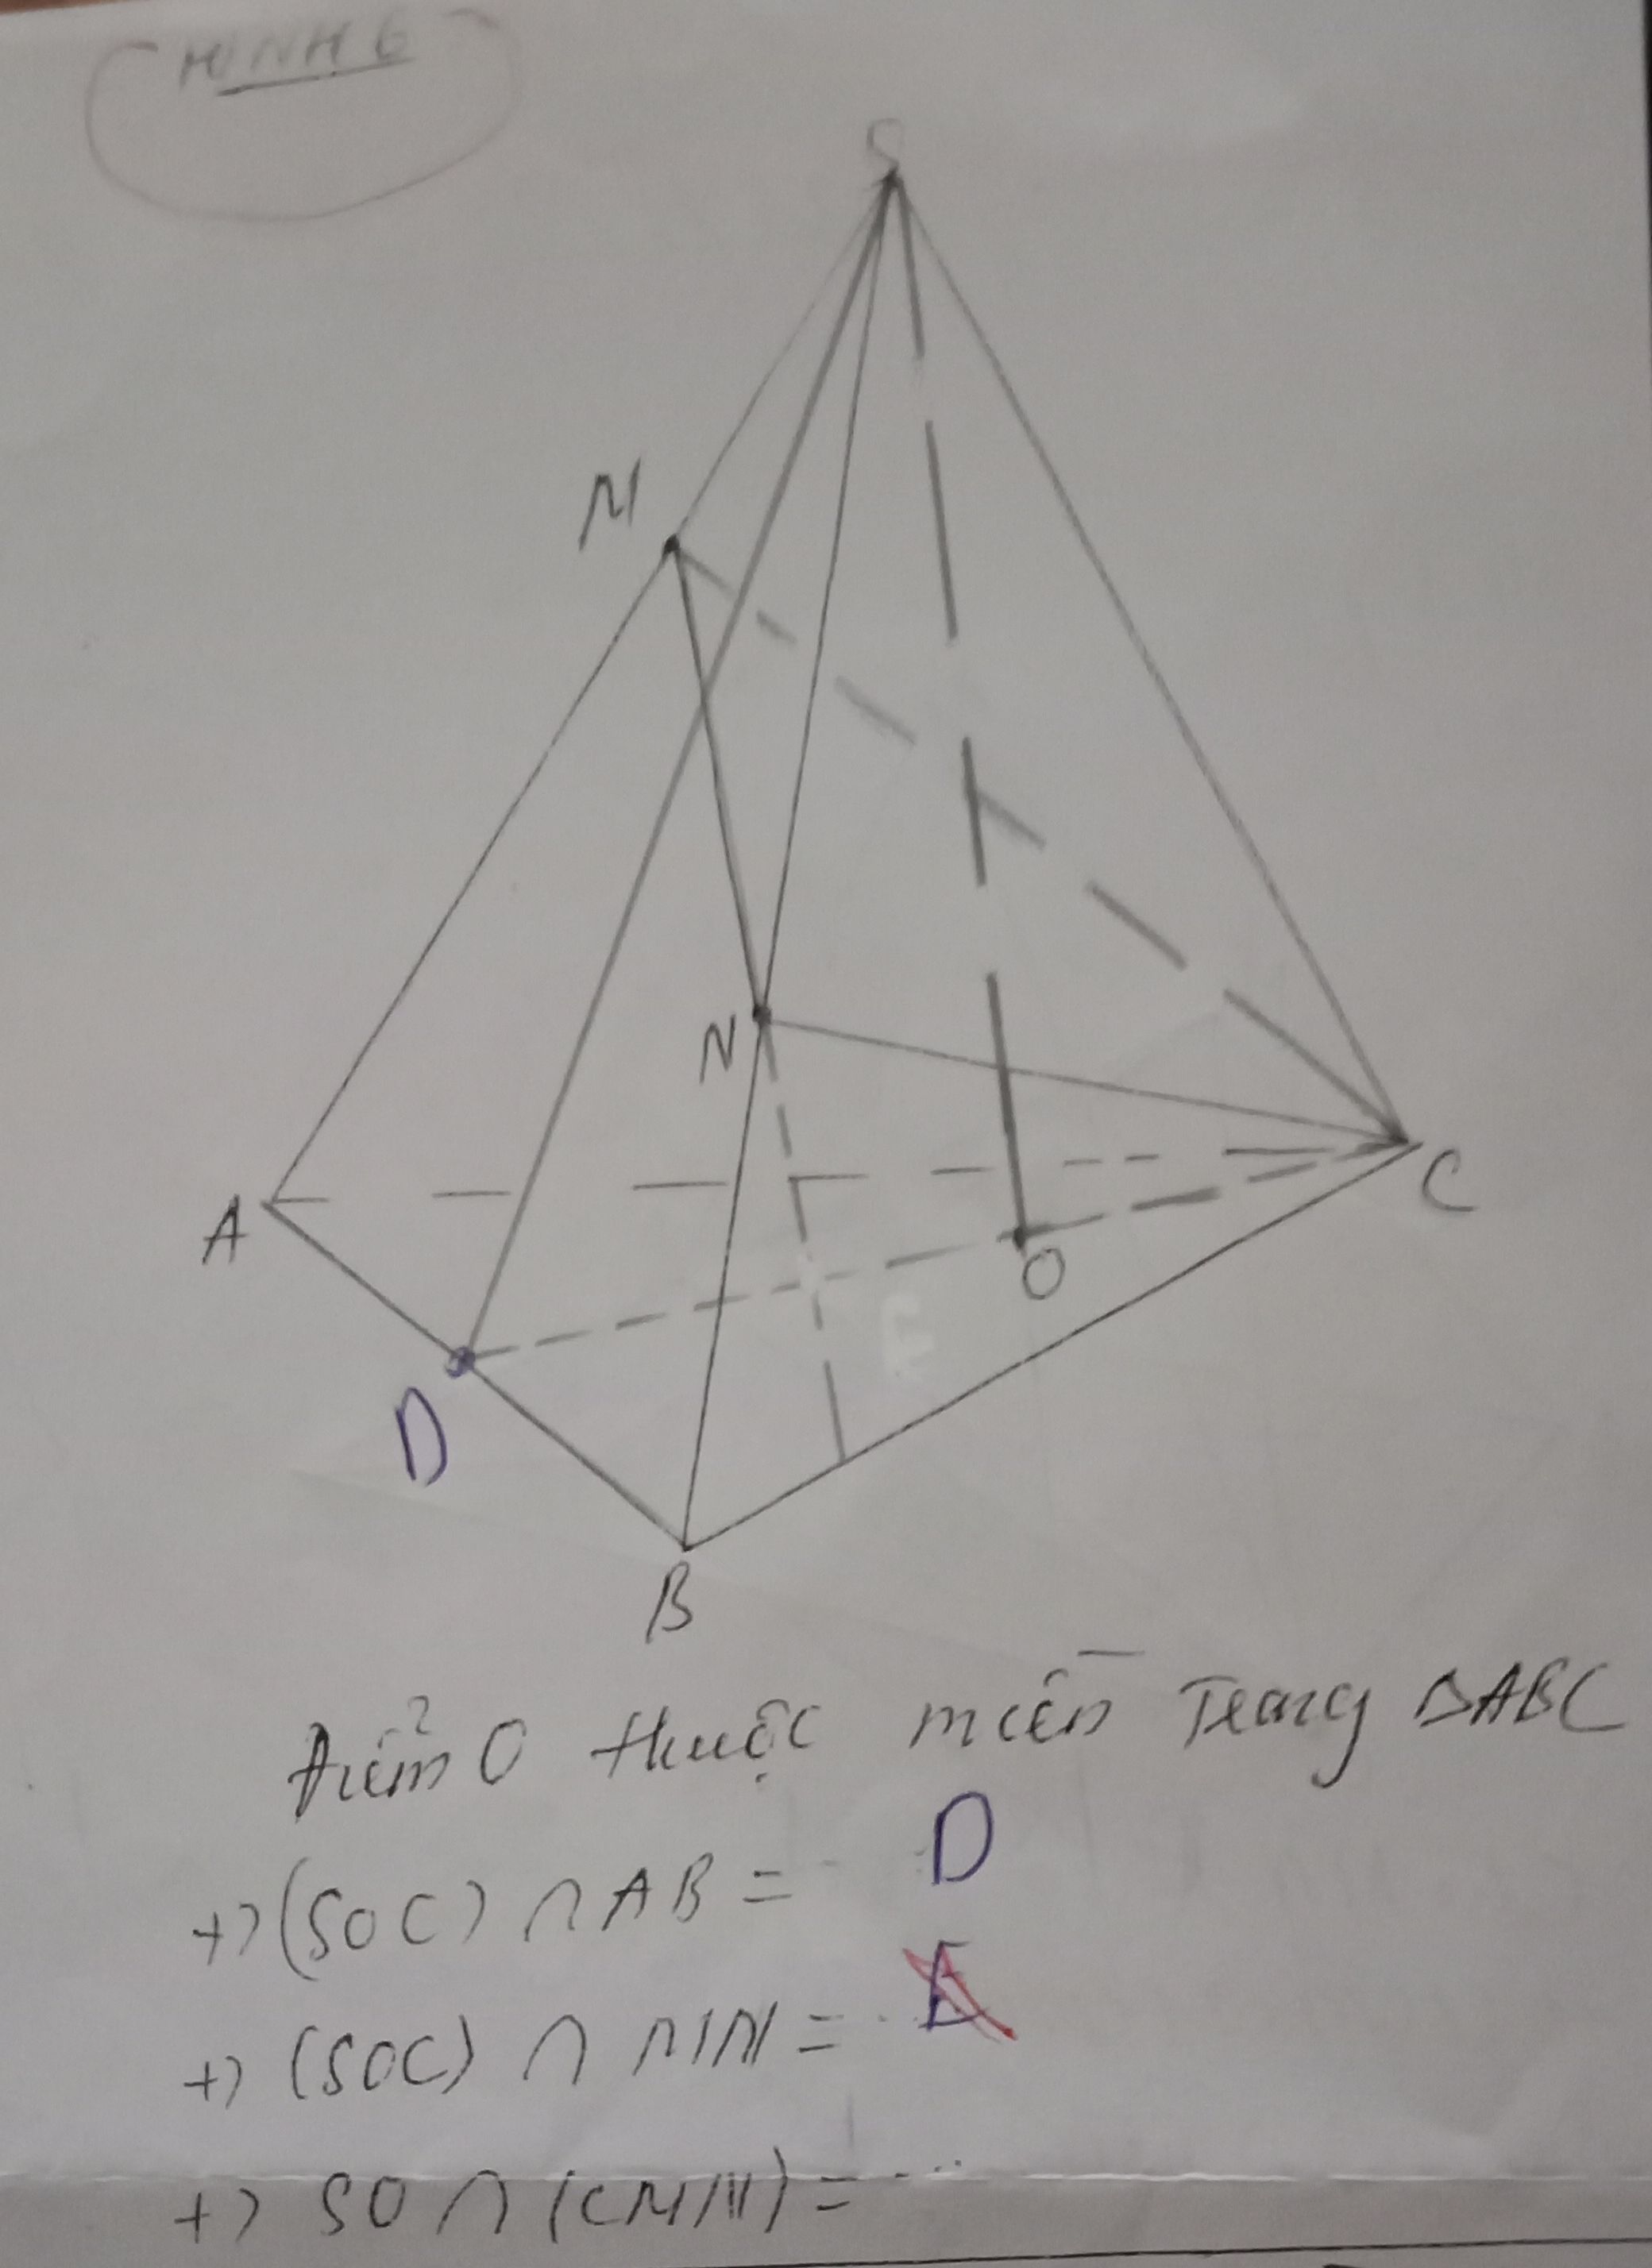 HÌNH 6
S
M
N
A
C
O
D
B
Điểm O thuộc miền Trong ΔABC
+) (SOC) ∩ AB = D
+) (SOC) ∩ MN = E
+) SO ∩ (CMN) = ...